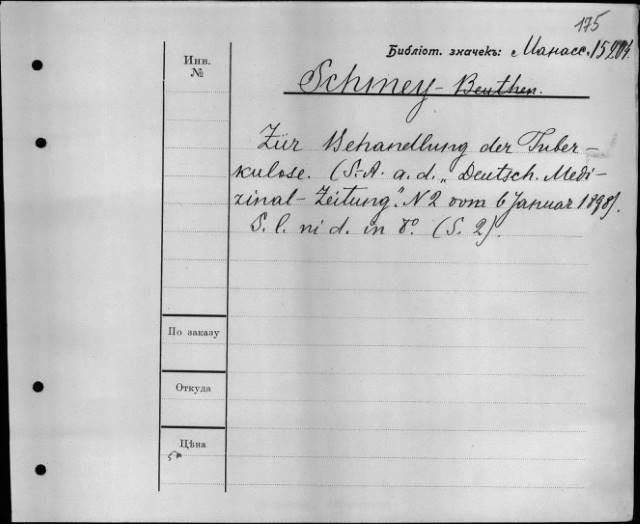 175
Библіот. значекъ: Манасс. 15204.
Инв.
№
Schmey - Beuthen.
Zur Behandlung der Tuber-
kulose. (S.-A. a. d. „Deutsch. Medi-
zinal-Zeitung". N 2 vom 6 Januar 1898).
S. l. ni d. in 8º. (S. 2).
По заказу
Откуда
Цѣна